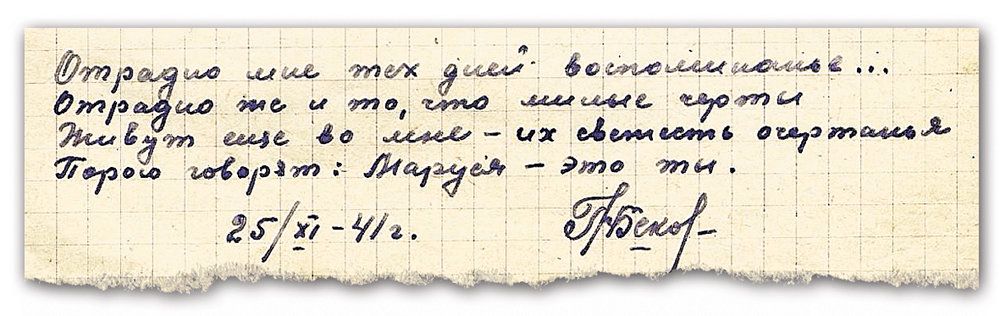 Отрадно мне тех дней воспоминанье...
Отрадно же и то, что милые черты
Живут еще во мне – их свежесть очертанья
Порою говорят: Маруся – это ты.
25/XI – 41 г.